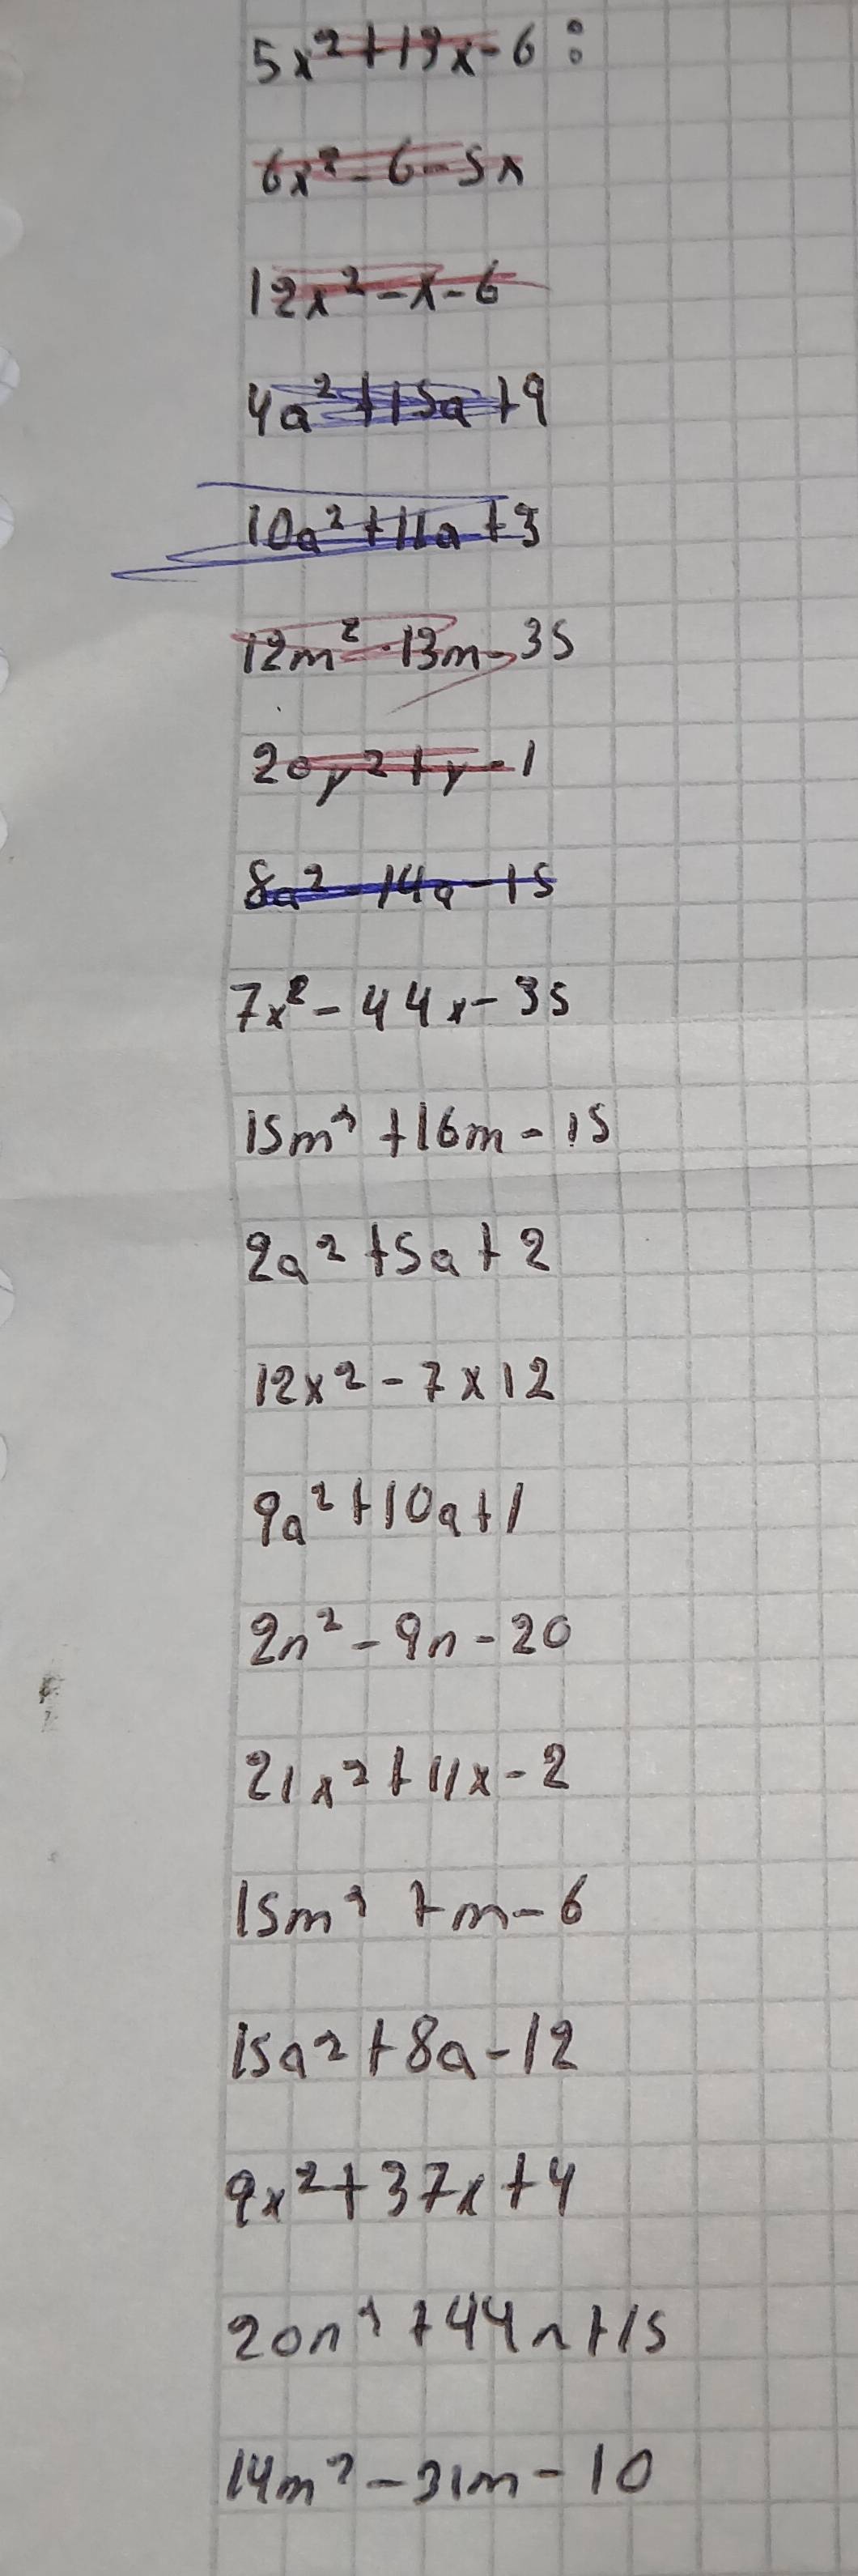 5x²+13x-6:
6x²-6-5x
12x²-x-6
4a²+15a+9
10a²+11a+3
12m²-13m-35
20y²+y-1
8a²-14a-15
7x²-44x-35
15m²+16m-15
2a²+5a+2
12x²-7x12
9a²+10a+1
2n²-9n-20
21x²+11x-2
15m²+m-6
15a²+8a-12
9x²+37x+4
20n²+44n+15
14m²-31m-10